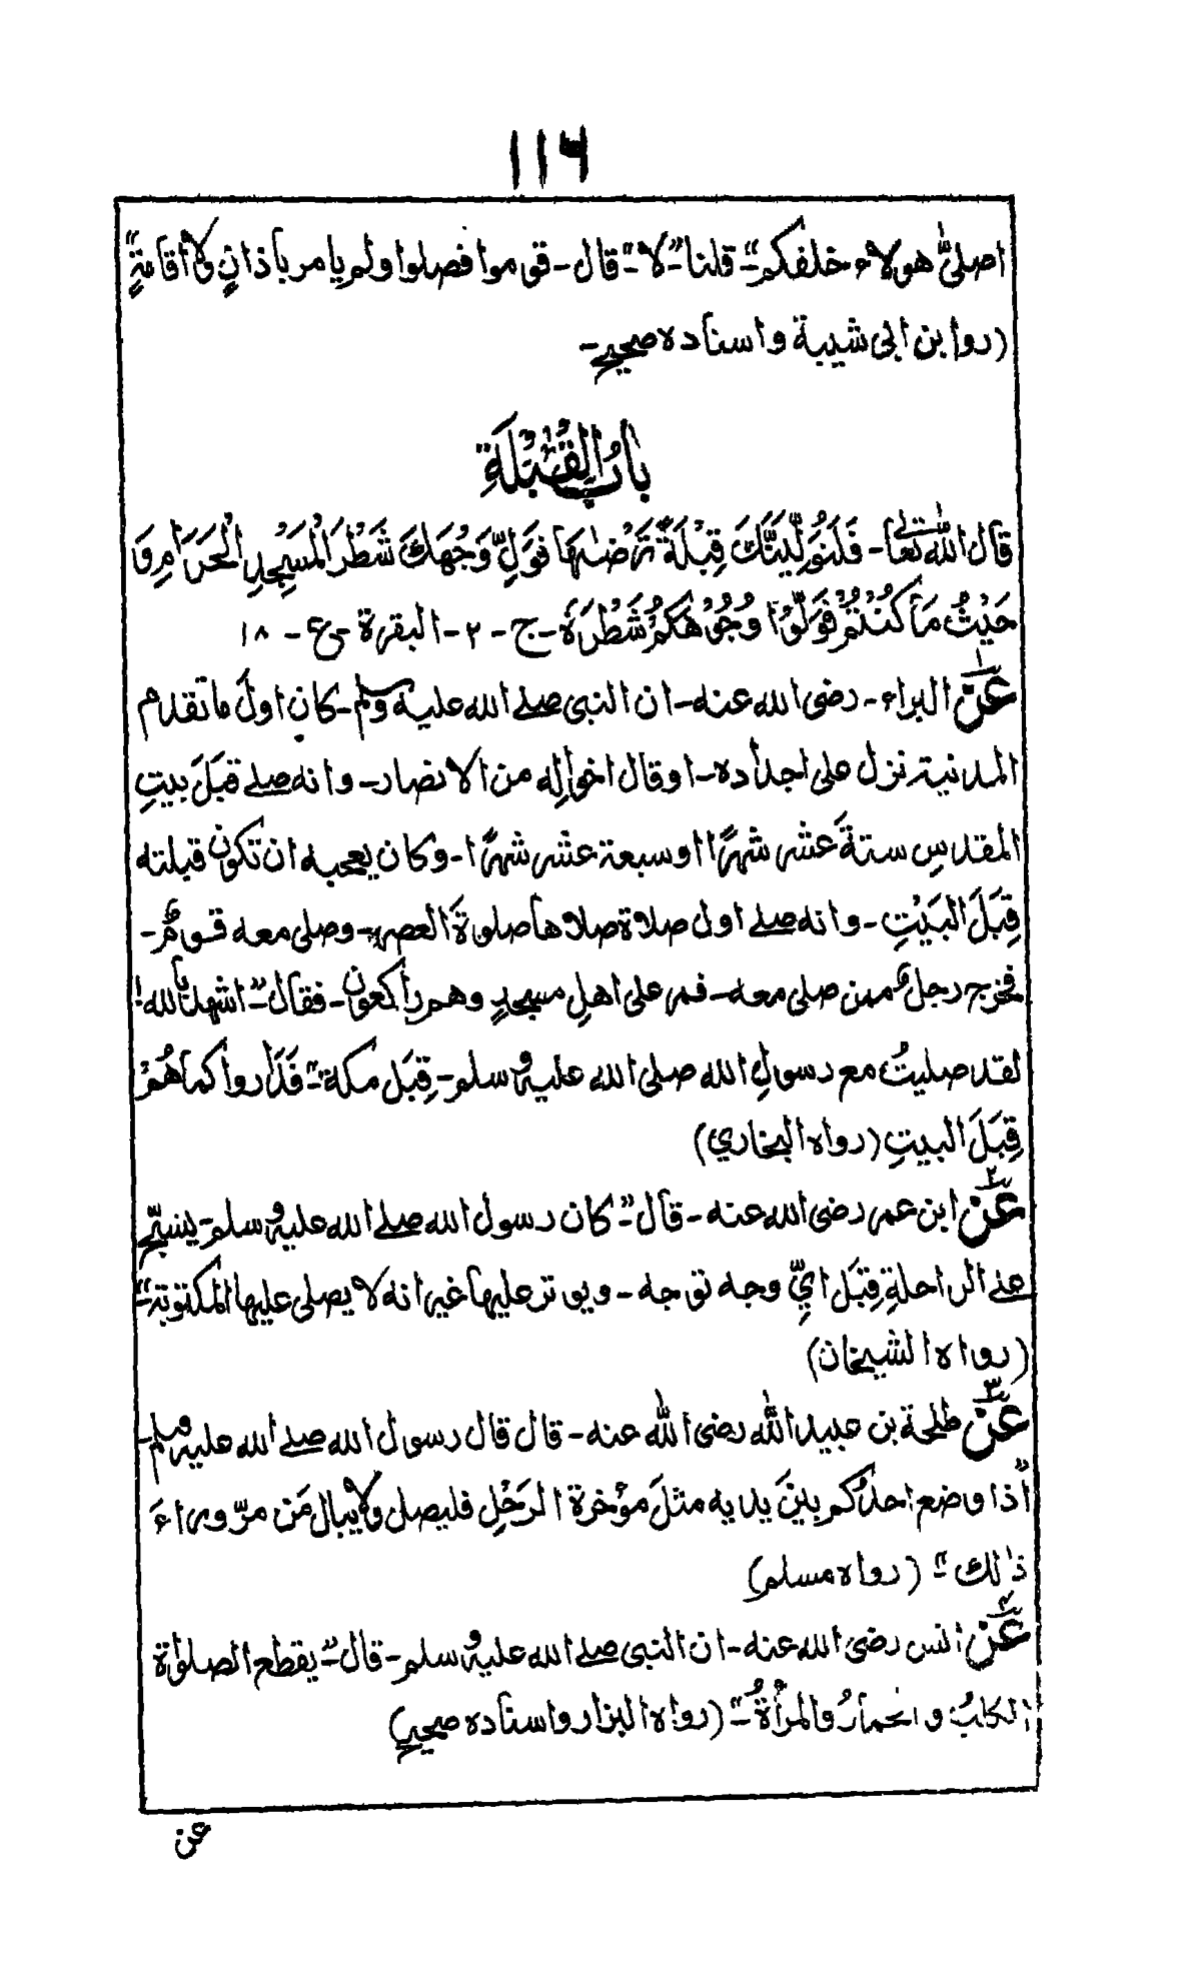 ۱۱۶
اصلیّ هولاء خلفکم" - قلنا - "لا" - قال - قوموا فصلوا ولم یامر باذانٍ ولا اقامةٍ"
(روا بن ابی شیبة واسناده صحیح -
بابُ القِبْلَةِ
قال الله تعالیٰ - فَلَنُوَلِّیَنَّكَ قِبْلَةً تَرْضٰهَا فَوَلِّ وَجْهَكَ شَطْرَ الْمَسْجِدِ الْحَرَامِ وَ
حَیْثُ مَا کُنْتُمْ فَوَلُّوْا وُجُوْهَکُمْ شَطْرَهٗ - ج - ۲ - البقرة - ع - ۱۸
عَنْ۱ البراء - رضی الله عنه - ان النبی صلے الله علیه وسلم - کان اولَ ما تقدم
المدنیة نزل علی اجداده - او قال اخوالِه من الانصار - وانه صلے قِبَلَ بیتِ
المقدس ستةَ عشر شهرًا او سبعة عشر شهرًا - وکان یعجبه ان تکون قبلته
قِبَلَ البَیْتِ - وانه صلے اول صلاة صلاها صلوةَ العصر - وصلی معه قومٌ -
فخرج رجلٌ ممن صلی معه - فمر علی اهلِ مسجدٍ وهم راکعون - فقال - "اشهد بالله!
لقد صلیتُ مع رسولِ الله صلی الله علیه وسلم - قِبَل مکة" - فَدَاروا کما هُمْ
قِبَلَ البیتِ (رواه البخاري)
عَنْ۲ ابن عمر رضی الله عنه - قال - "کان رسول الله صلے الله علیه وسلم - یسبّح
علے الراحلةِ قِبَل ايِّ وجه توجه - ویوتر علیها غیر انه لا یصلی علیها المکتوبة" -
(رواه الشیخان)
عَنْ۳ طلحة بن عبید الله رضی الله عنه - قال قال رسول الله صلے الله علیه وسلم -
"اذا وضع احدُکم بینَ یدیه مثلَ مؤخرة الرَحْلِ فلیصل ولا یبال مَن مرّ وراءَ
ذٰلك" - (رواه مسلم)
عَنْ۴ انس رضی الله عنه - ان النبی صلے الله علیه وسلم - قال - "یقطع الصلوٰة
الکلبُ والحمارُ والمرأةُ" - (رواه البزار واسناده صحیح)
عن